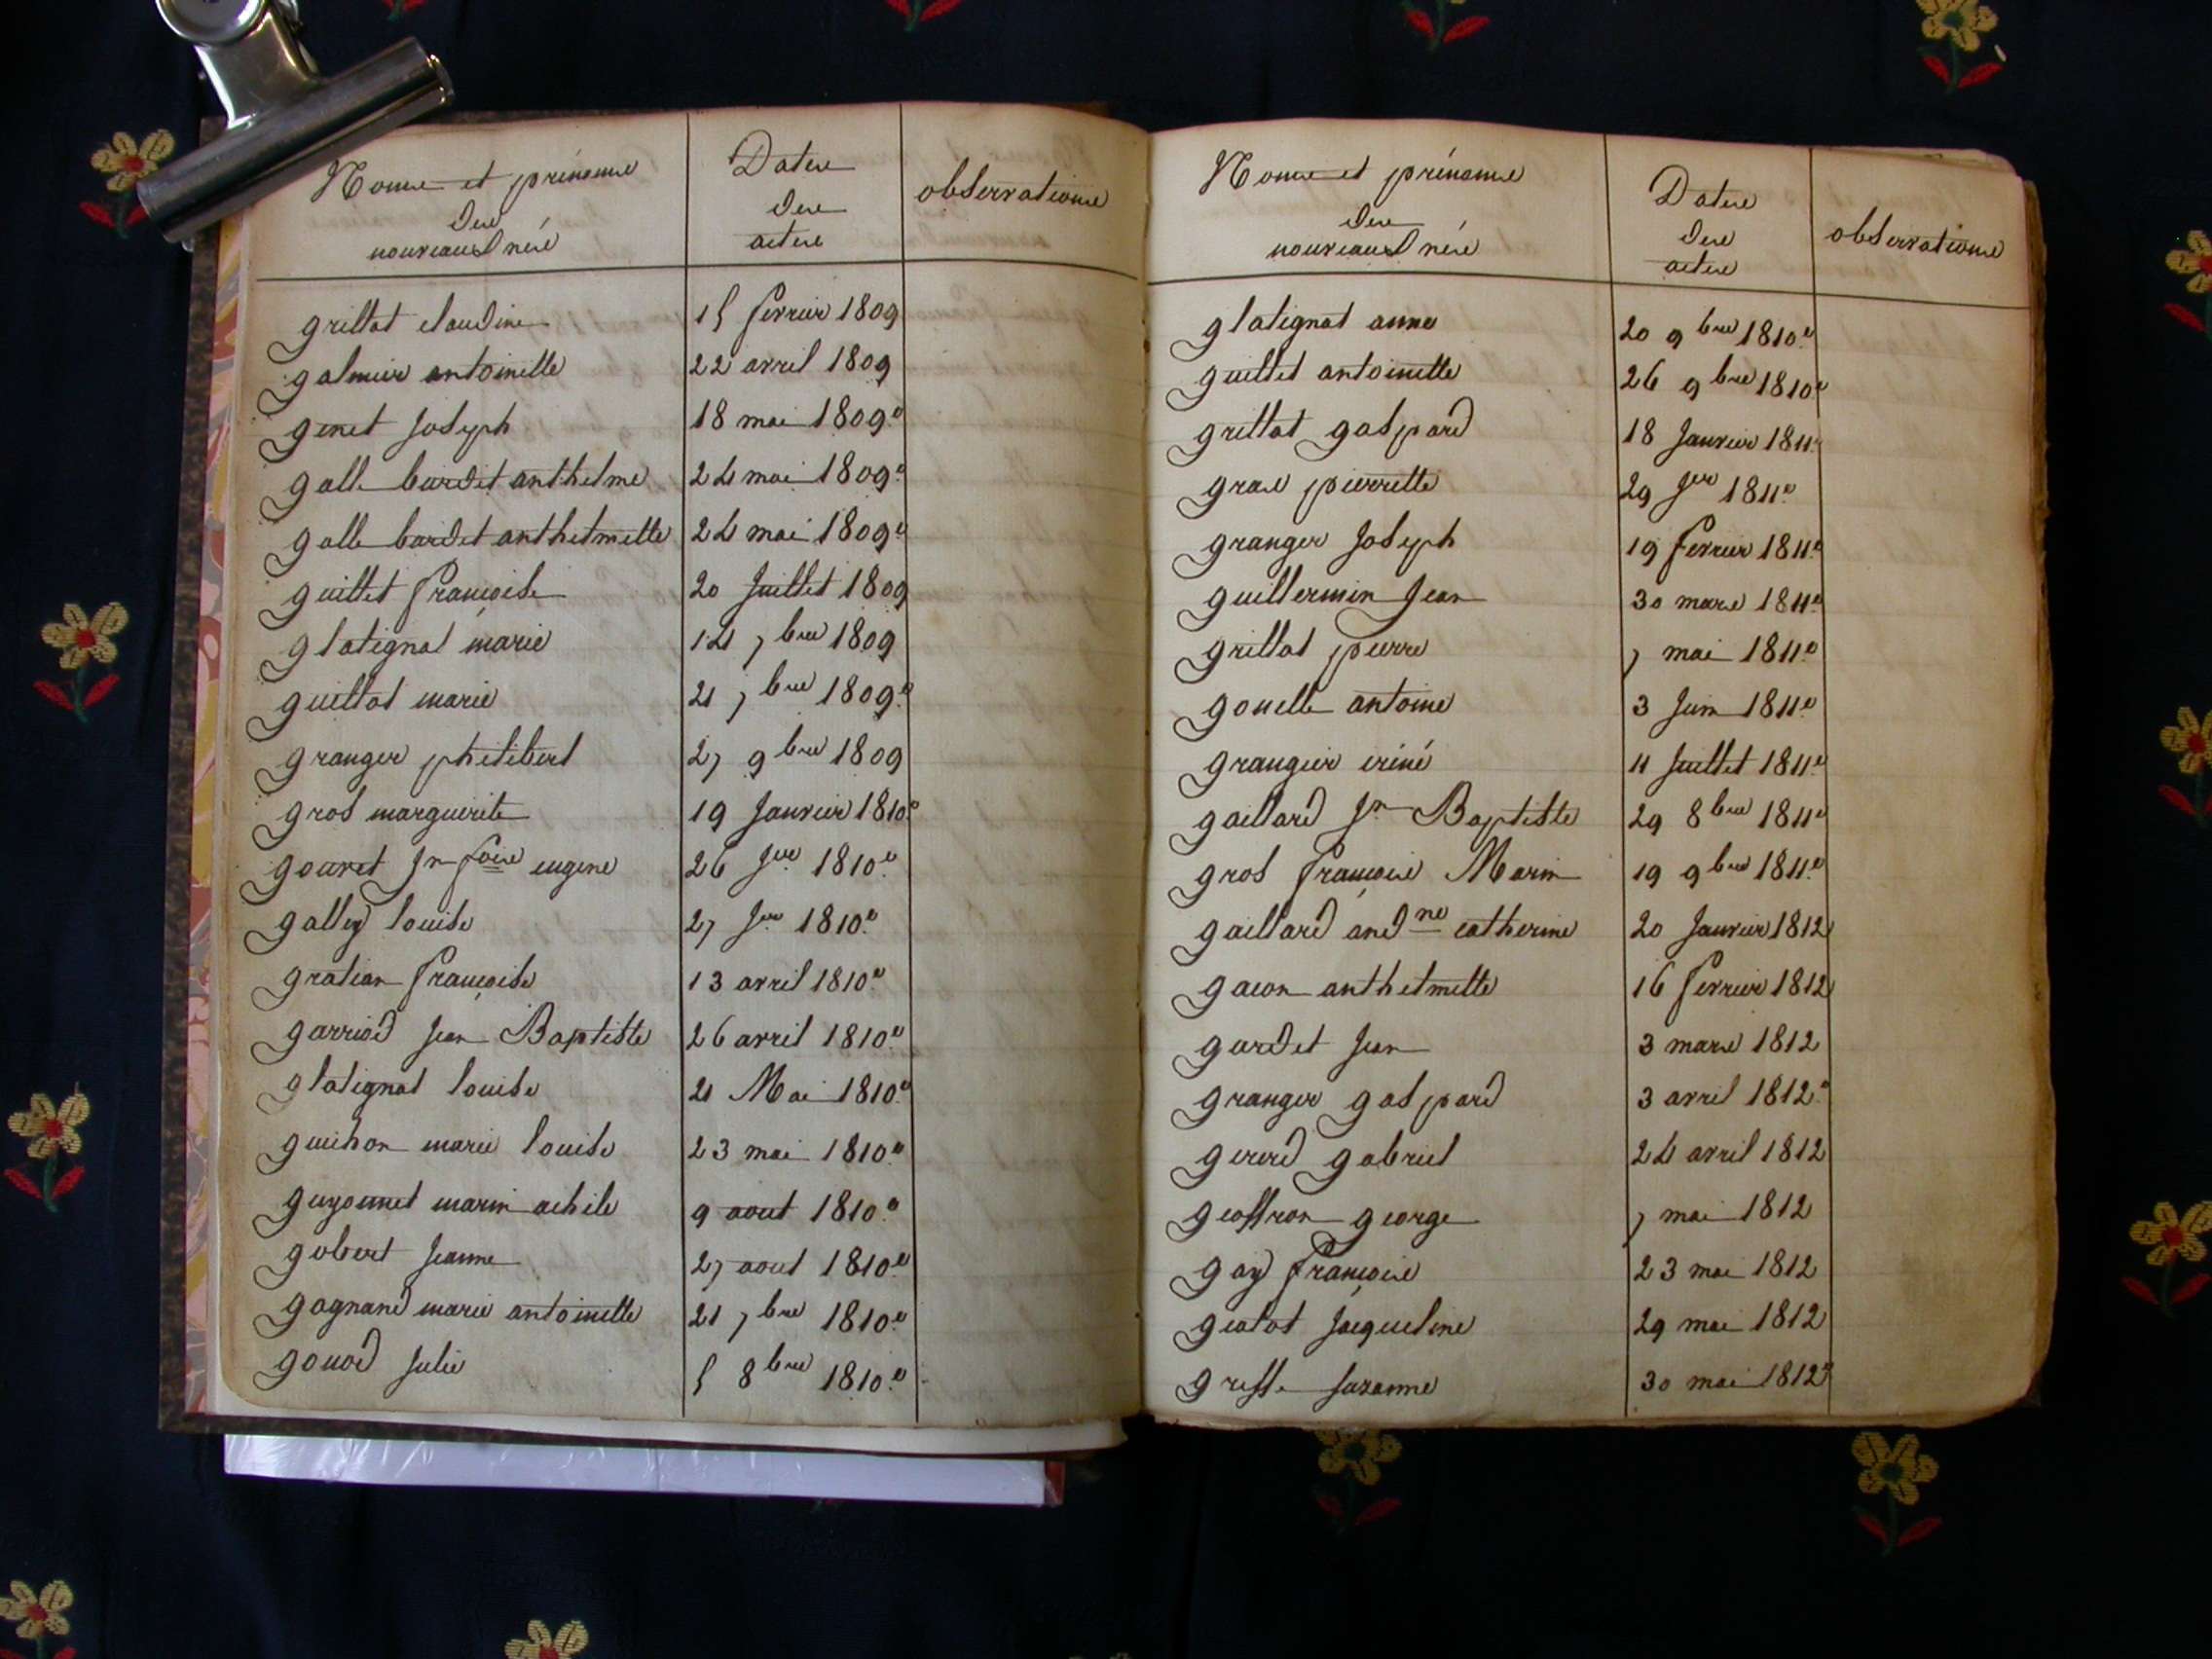 Noms et prénoms
des
nouveaux nés
Dates
des
actes
observations
grillat claudine 15 fevrier 1809
galmier antoinette 22 avril 1809
genet Joseph 18 mai 1809.
galle bardet anthelme 24 mai 1809.
galle bardet anthelmette 24 mai 1809.
guillet françoise 20 Juillet 1809
glatignat marie 14 7bre 1809
guillat marie 21 7bre 1809.
granger philibert 27 9bre 1809
gros marguerite 19 Janvier 1810.
gouret Jn fois eugene 26 Jer 1810.
galley louise 27 Jer 1810.
gratian françoise 13 avril 1810.
garriod Jean Baptiste 26 avril 1810.
glatignat louise 21 Mai 1810.
guichon marie louise 23 mai 1810.
guyonnet marin achile 9 aout 1810.
gobert Jeanne 27 aout 1810.
gagnand marie antoinette 21 7bre 1810.
gouod Julie 5 8bre 1810.
Noms et prénoms
des
nouveaux nés
Dates
des
actes
observations
glatignat anne 20 9bre 1810.
guillet antoinette 26 9bre 1810.
grillat gaspard 18 Janvier 1811.
gras pierrette 29 Jer 1811.
granger Joseph 19 fevrier 1811.
guillermin Jean 30 mars 1811.
grillat pierre 7 mai 1811.
gonelle antoine 3 Juin 1811.
grangier iréné 11 Juillet 1811.
gaillard Jn Baptiste 29 8bre 1811.
gros françois Marin 19 9bre 1811.
gaillard andne catherine 20 Janvier 1812
gacon anthelmette 16 fevrier 1812
gardet Jean 3 mars 1812
granger gaspard 3 avril 1812.
gererd gabriel 24 avril 1812
geoffron george 7 mai 1812
gay françois 23 mai 1812
gealat Jacqueline 29 mai 1812
greffe suzanne 30 mai 1812